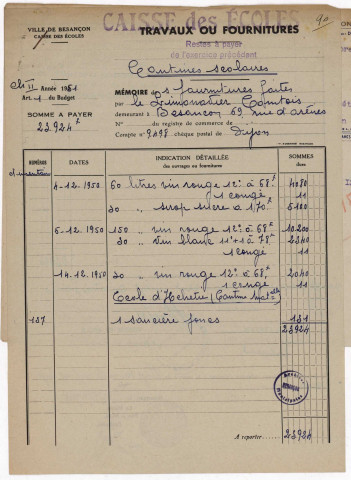 VILLE DE BESANÇON
CAISSE DES ÉCOLES
CAISSE des ÉCOLES
90
TRAVAUX OU FOURNITURES
Restes à payer
de l'exercice précédent
Cantines scolaires
Ch. II Année 1951
Art. 1 du Budget
SOMME A PAYER
23.924
MÉMOIRE des fournitures faites
par le Limonadier Comtois
demeurant à Besançon 69 rue d'arènes
N° du registre de commerce de
Compte n° 9.498 chèque postal de Dijon
NUMÉROS DATES INDICATION DÉTAILLÉE SOMMES
des ouvrages ou fournitures dues
d'inventaire
4-12.1950 60 litres vin rouge 12° à 68 4080
1 congé 11
30 " sirop sucre à 170 5100
6-12.1950 150 " vin rouge 12° à 68 10.200
30 " vin blanc 11°+1 à 78 2340
1 congé 11
14.12.1950 30 " vin rouge 12° à 68 2040
1 congé 11
Ecole d'Helvétie (Cantine
137 1 saucière foncs 131
23924
A reporter 23924